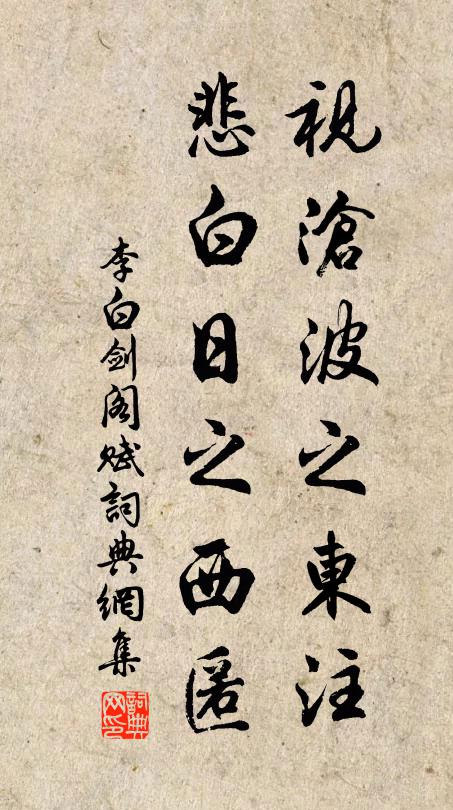 視滄波之東注
悲白日之西匿
李白剑阁赋詞典網集
詞典
网印